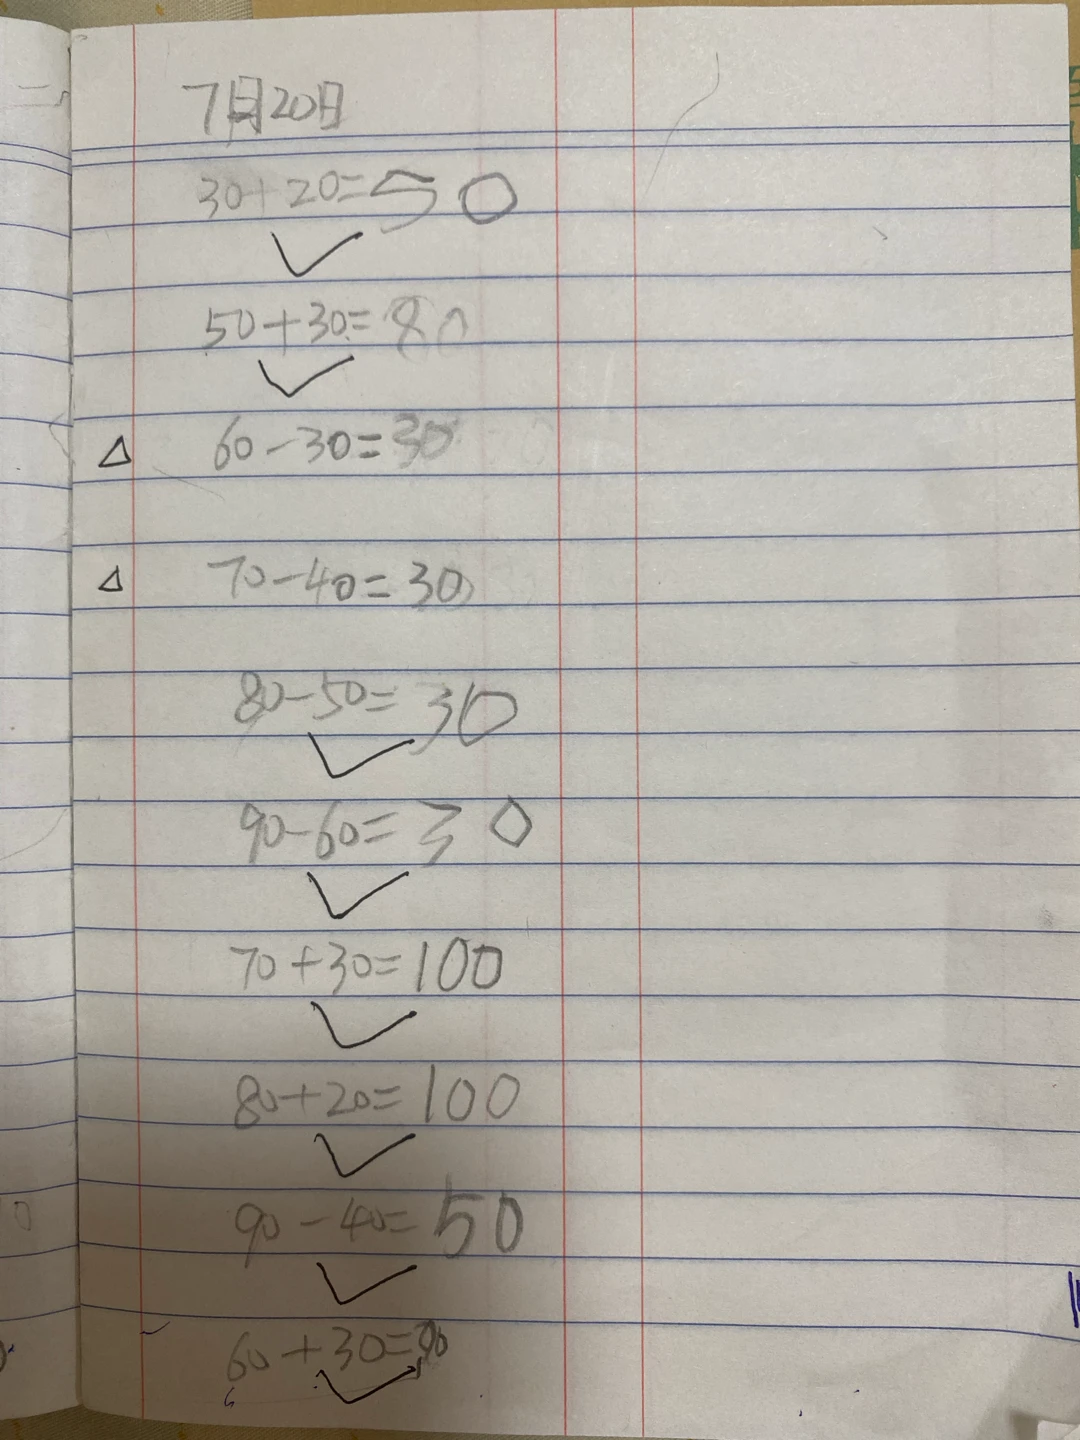 7月20日
30+20=50
50+30=80
△ 60-30=30
△ 70-40=30
80-50=30
90-60=30
70+30=100
80+20=100
90-40=50
60+30=90